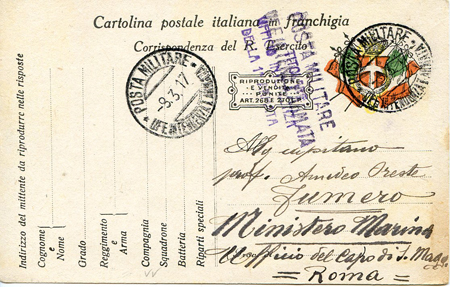 Cartolina postale italiana in franchigia
Corrispondenza del R. Esercito
POSTA MILITARE
-8.3.17
POSTA MILITARE
RIPRODUZIONE
E VENDITA
PUNITE
POSTA MILITARE
DELLA
All capitano
prof. Amedeo Oreste
Fumero
Ministero Marina
Ufficio del Capo di S. Magg.
= Roma =
Indirizzo del mittente da riprodurre nelle risposte
Cognome e Nome
Grado
Reggimento e Arma
Compagnia
Squadrone
Batteria
Riparti speciali